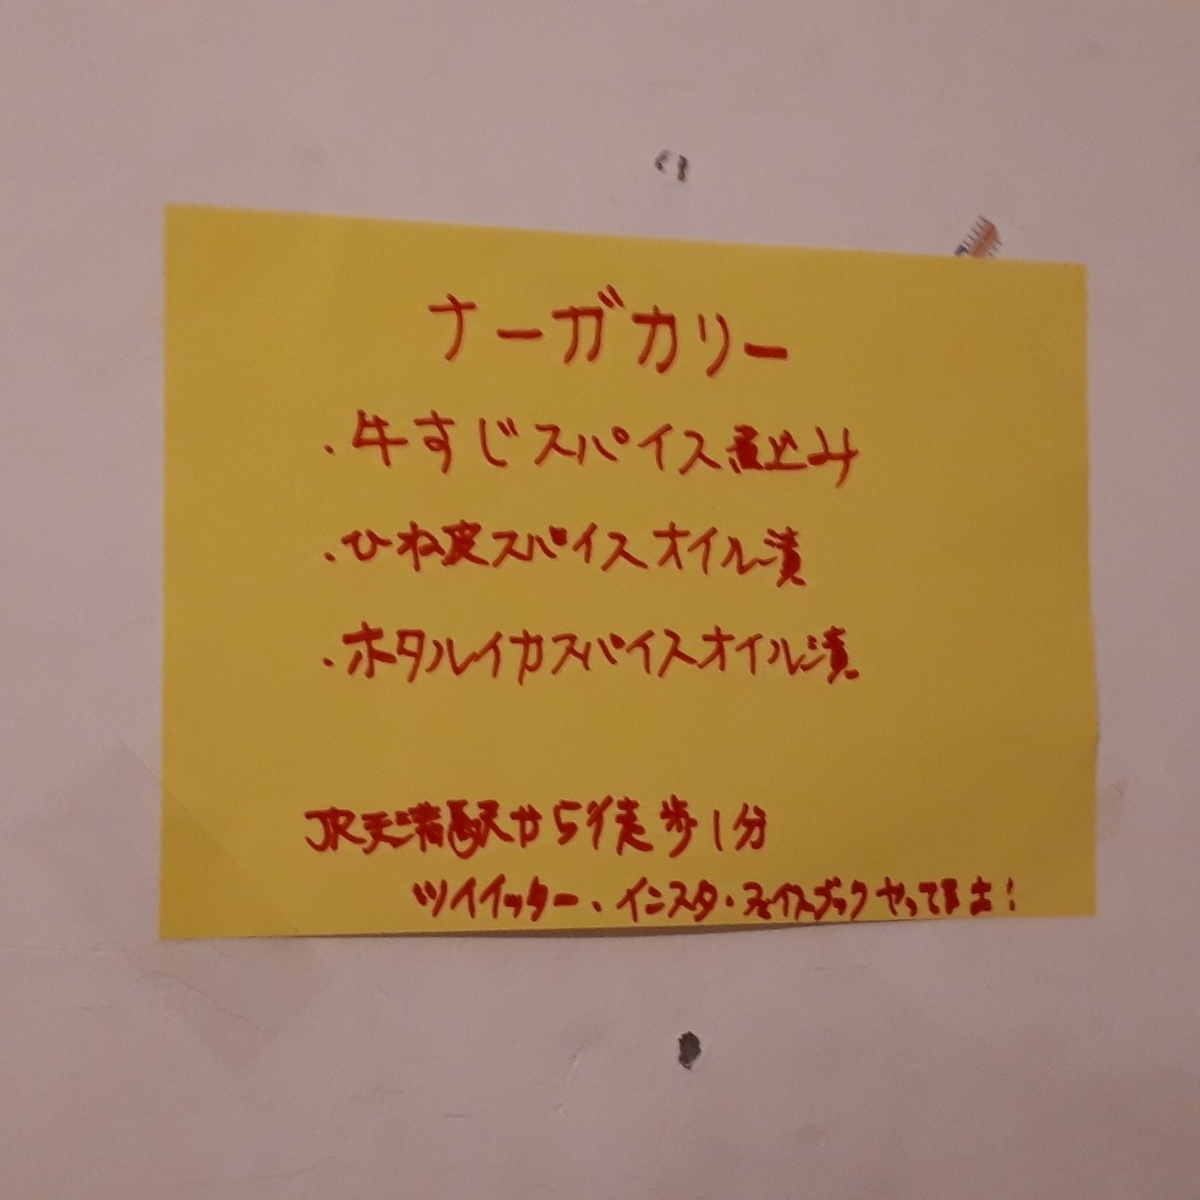 ナーガカリー
・牛すじスパイス煮込み
・ひね皮スパイスオイル漬
・ホタルイカスパイスオイル漬
JR天満駅から徒歩1分
ツイイッター、インスタ・フェイスブックやってます!